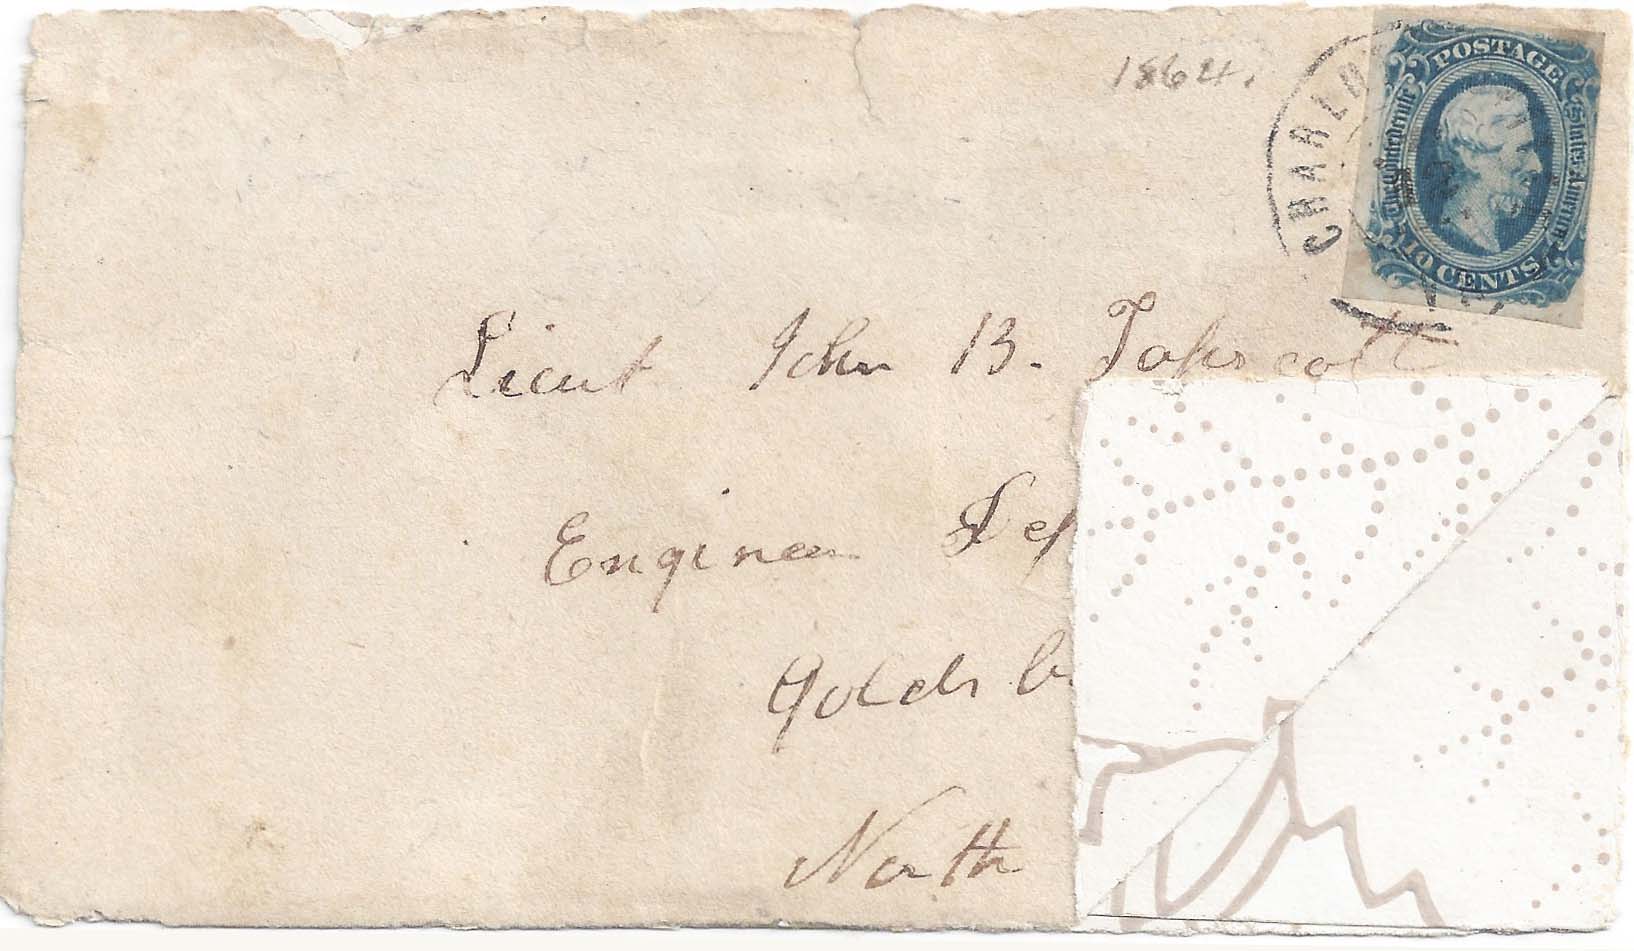 1864.
CHARLO
POSTAGE
The Confederate States America
10 CENTS
Lieut John B. Tapscott
Engineer Dep
Goldsb
North